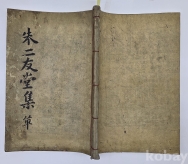 朱二友堂集
kobay